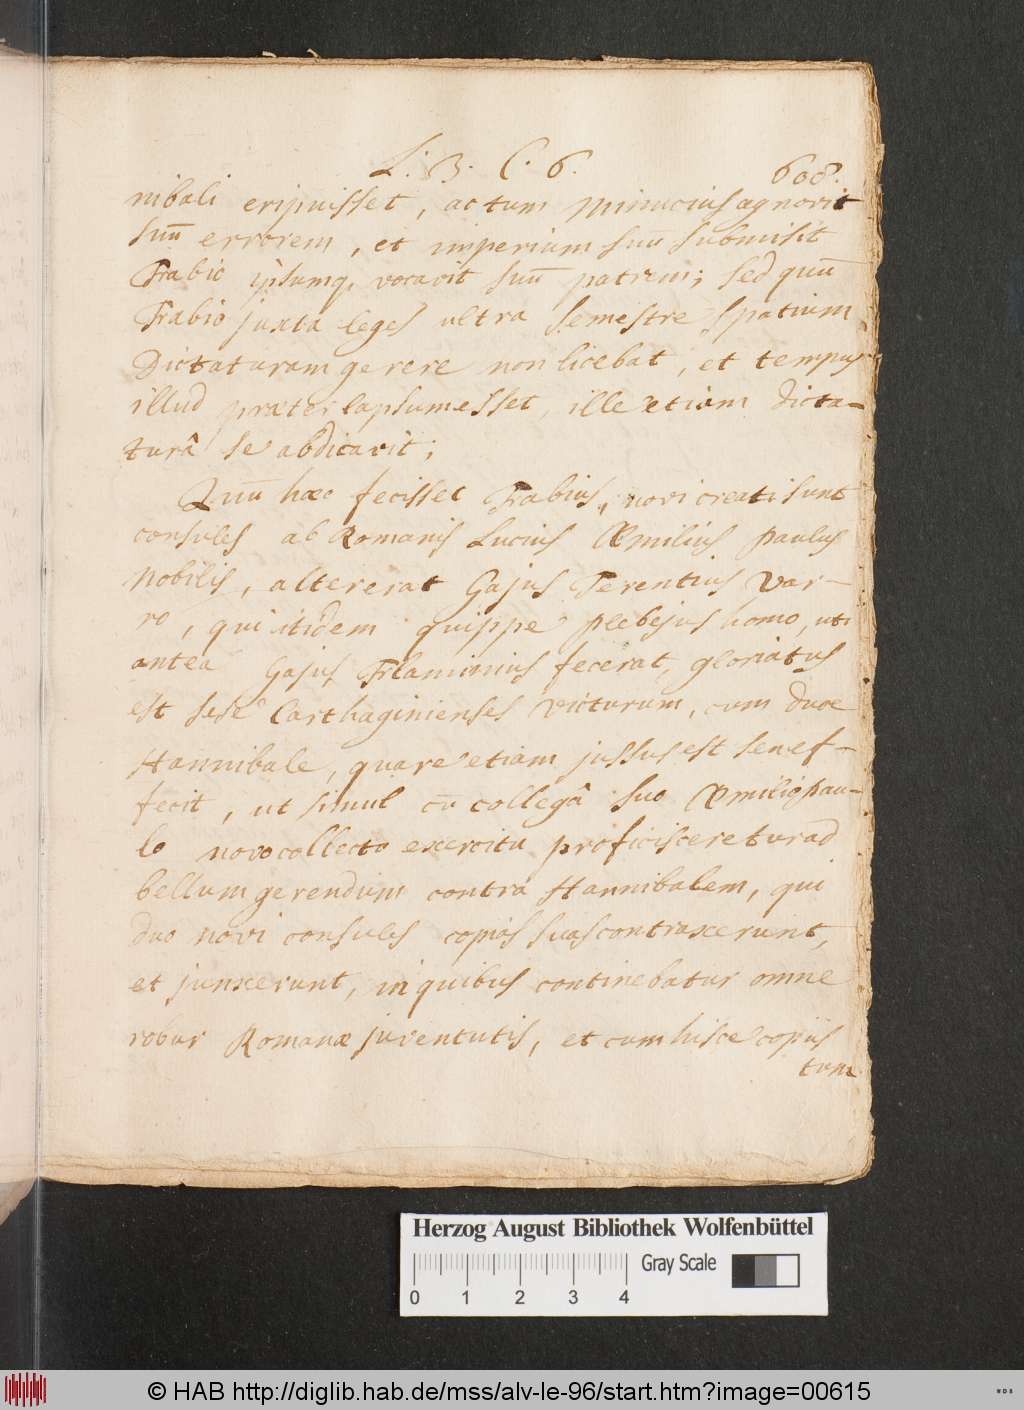 L. 3. C. 6. 608.
nibali eripuisset, actum Minucius agnovit
suū errorem, et imperium suū submisit
Fabio ipsumq, vocavit suū patrem; sed quū
Fabio juxta leges ultra semestre spatium
Dictaturam gerere non licebat, et tempus
illud præterlapsum esset, ille etiam dicta-
turâ se abdicavit;
Quū hæc fecisset Fabius, novi creati sunt
consules ab Romanis Lucius Æmilius Paulus
Nobilis, alter erat Gajus Terentius Var-
ro, qui itidem quippe plebejus homo, uti
antea Gajus Flaminius fecerat, gloriatus
est sese Carthaginienses victurum, cum duce
Hannibale, quare etiam jussus est senef-
fecit, ut simul cū collegâ suo Æmilio Pau-
lo novo collecto exercitu proficisceretur ad
bellum gerendum contra Hannibalem, qui
duo novi consules copias suas contraxerunt,
et junxerunt, in quibus continebatur omne
robur Romanæ juventutis, et cum hisce copiis
tum
Herzog August Bibliothek Wolfenbüttel
Gray Scale
0 1 2 3 4
© HAB http://diglib.hab.de/mss/alv-le-96/start.htm?image=00615